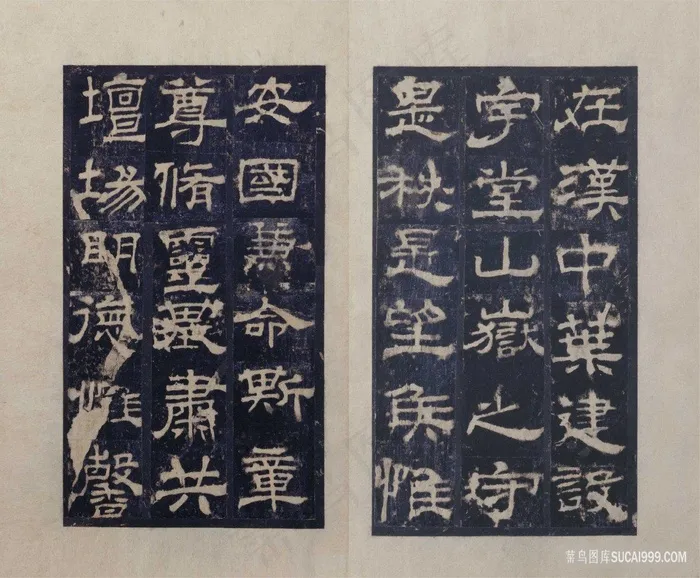 在漢中葉建設
宇堂山嶽之守
是秩是望侯惟
安國兼命斯章
尊脩靈基肅共
壇場明德惟馨
菜鸟图库SUCAI999.COM